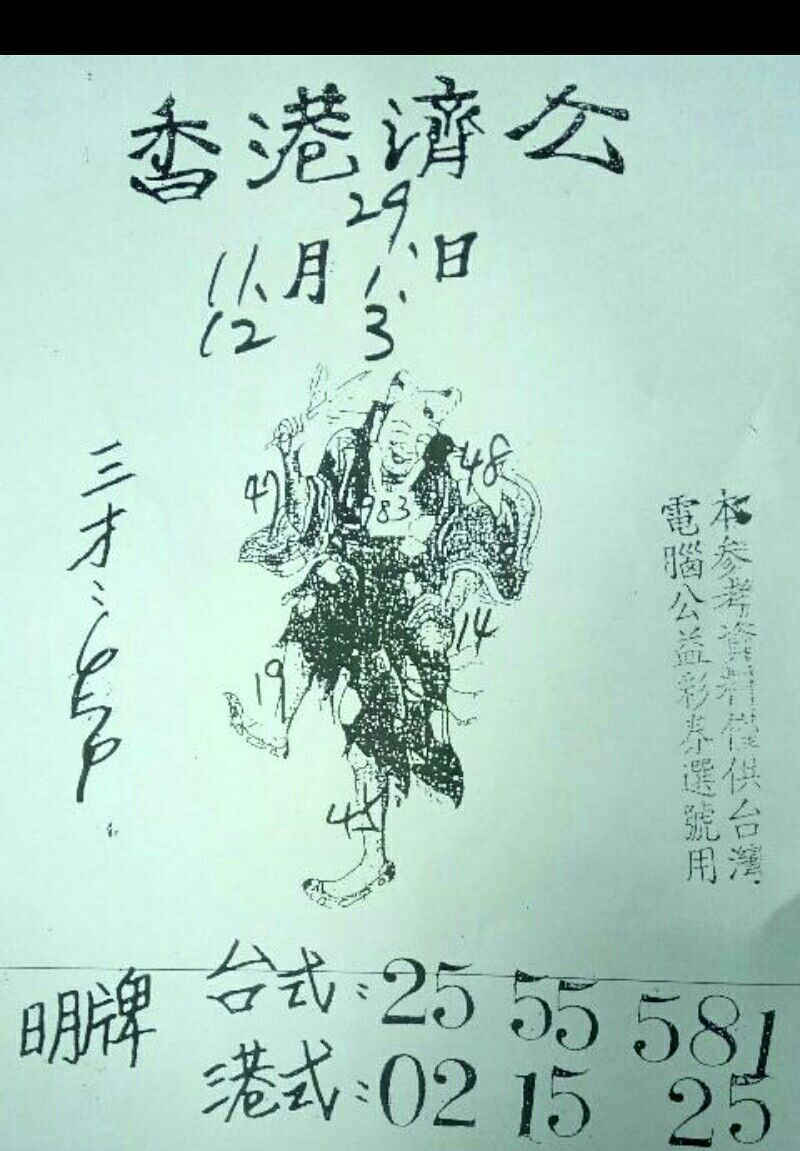 香港濟公
29、
11、月 1、日
12 3
三才:
47
48
983
14
19
45
本參考資料僅供台灣
電腦公益彩券選號用
明牌
台式:25 55 581
港式:02 15 25